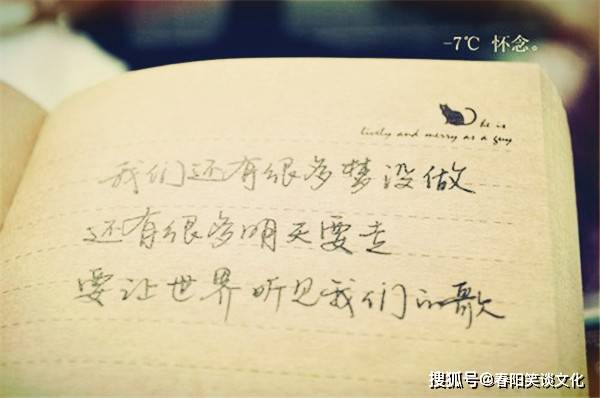 -7℃ 怀念。
he is
lively and merry as a guy
我们还有很多梦没做
还有很多明天要走
要让世界听见我们的歌
搜狐号@春阳笑谈文化